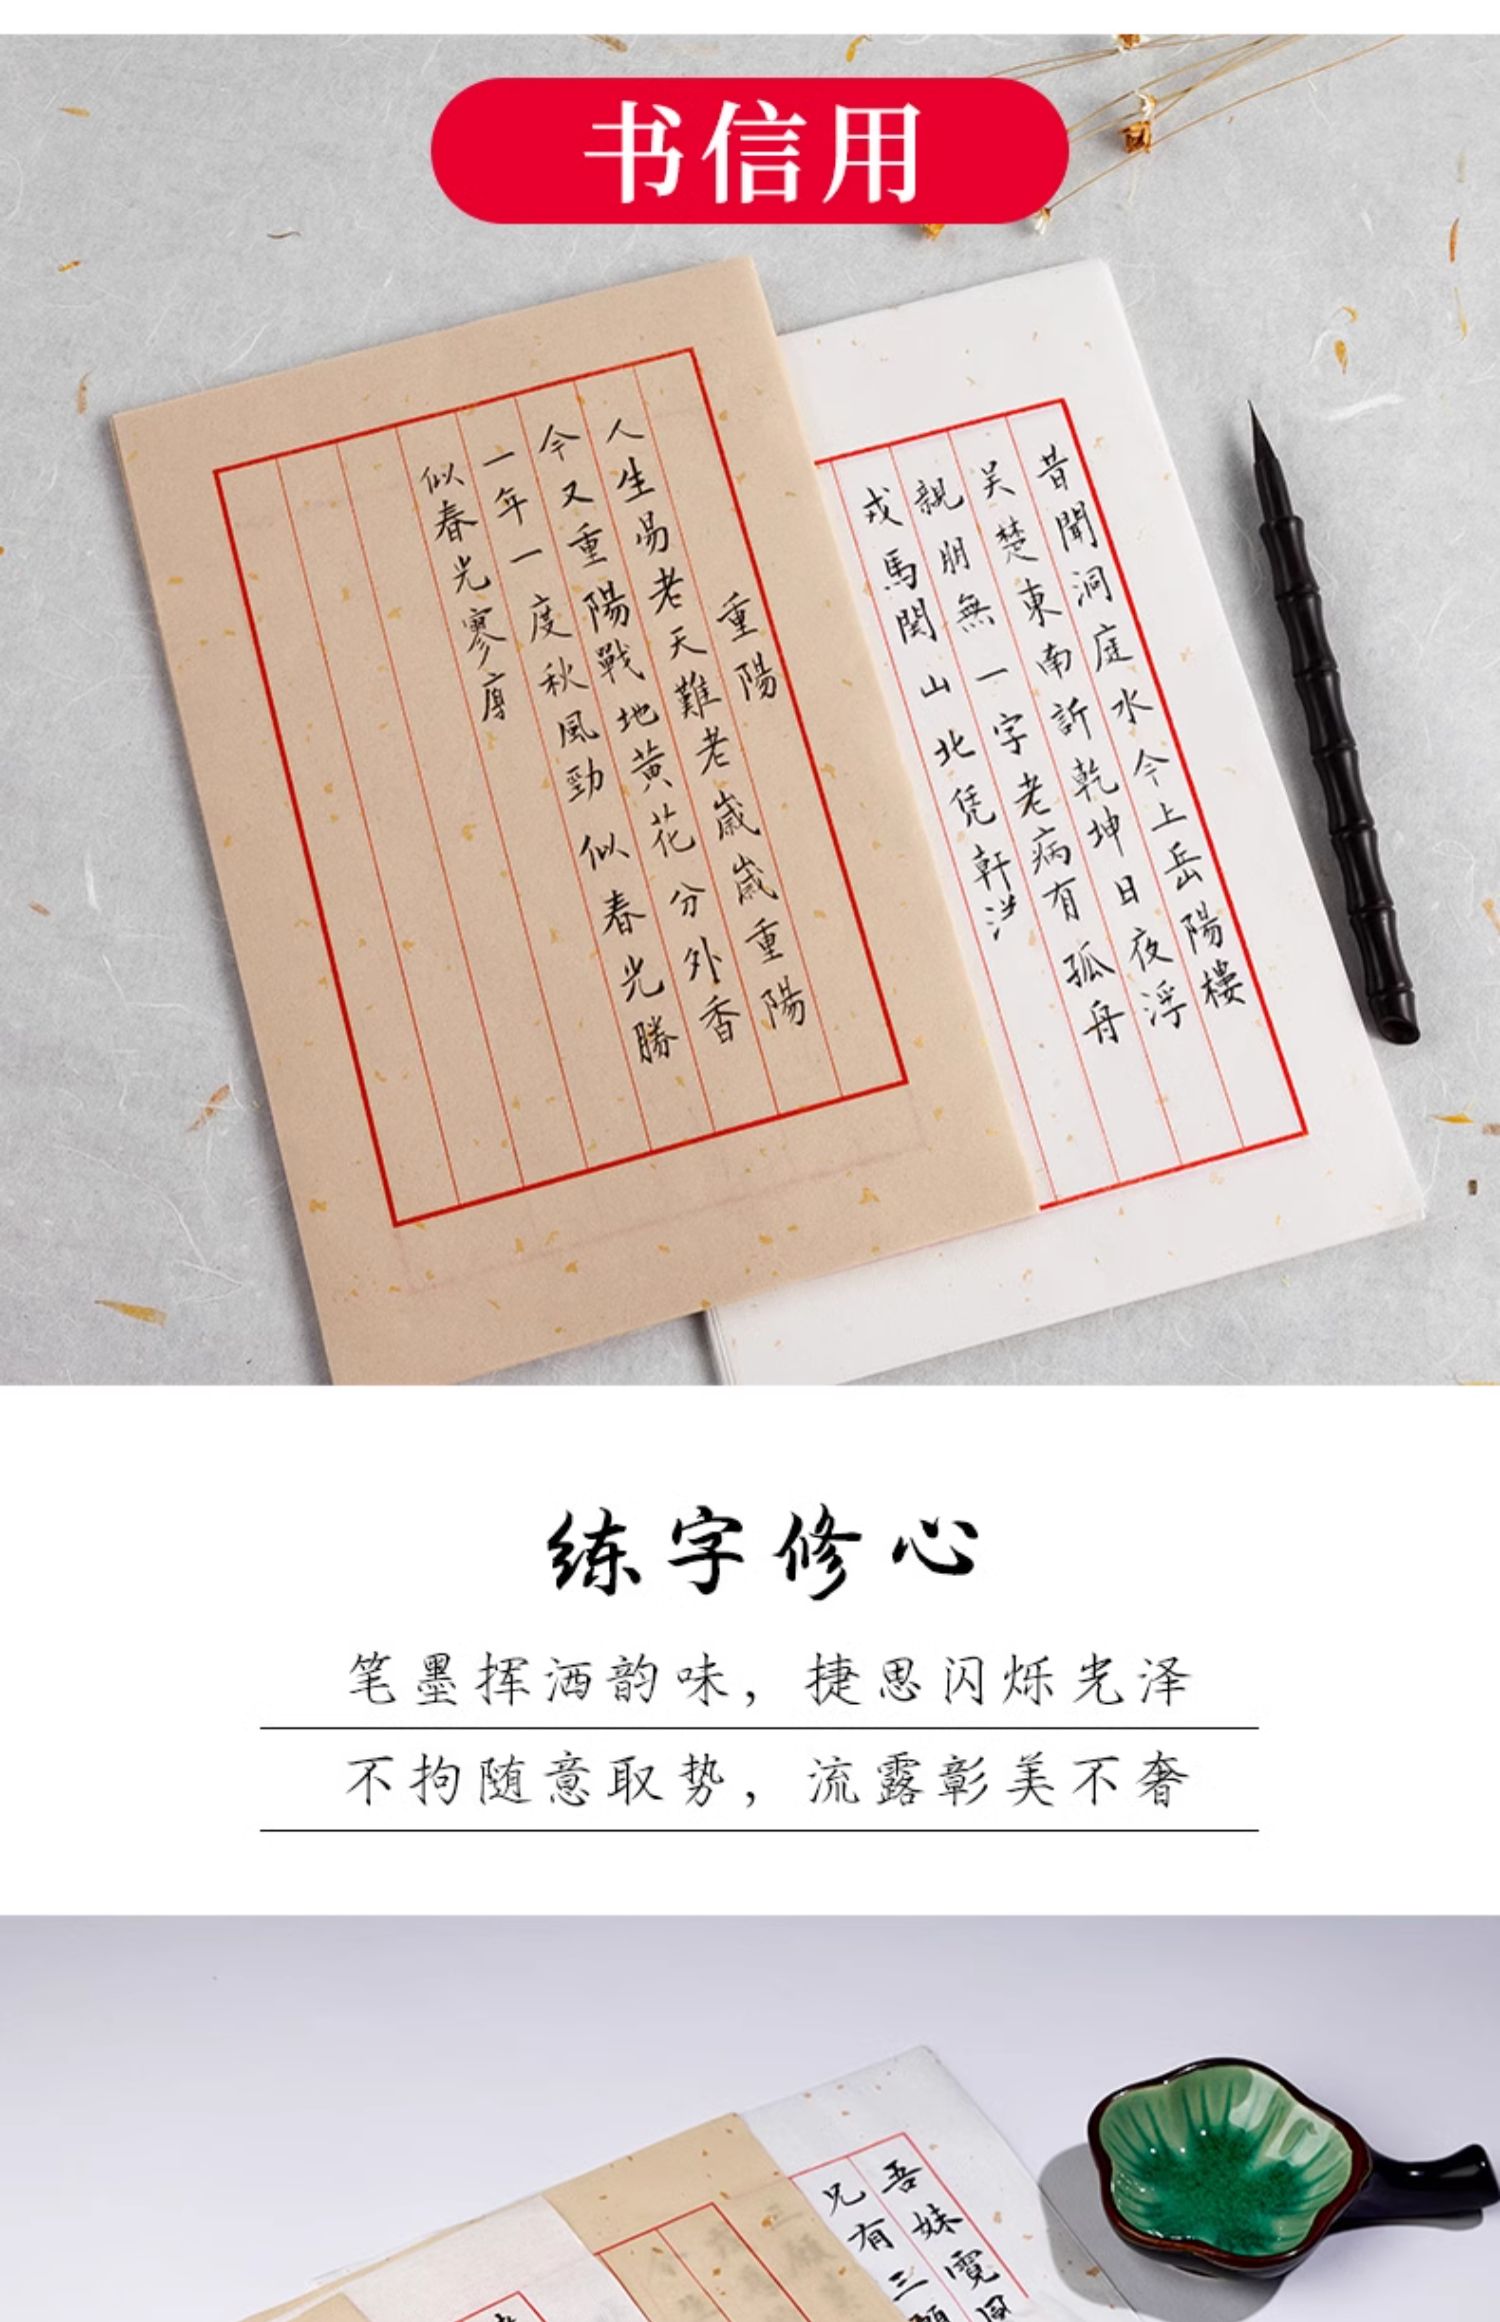 书信用
重陽
人生易老天難老歲歲重陽
今又重陽戰地黃花分外香
一年一度秋風勁 似春光勝
似春光寥廓
昔聞洞庭水今上岳陽樓
吴楚東南訴乾坤日夜浮
親朋無一字老病有孤舟
戎馬関山北凭軒涕
练字修心
笔墨挥洒韵味，捷思闪烁光泽
不拘随意取势，流露彰美不奢
吾妹霓
兄有三願